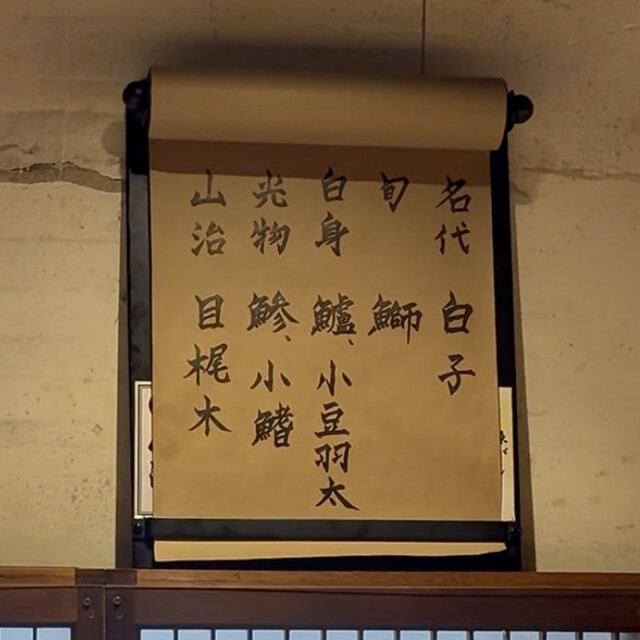 名代 白子
旬 鰤
白身 鱸、小豆羽太
光物 鯵、小鰭
山治 目梶木